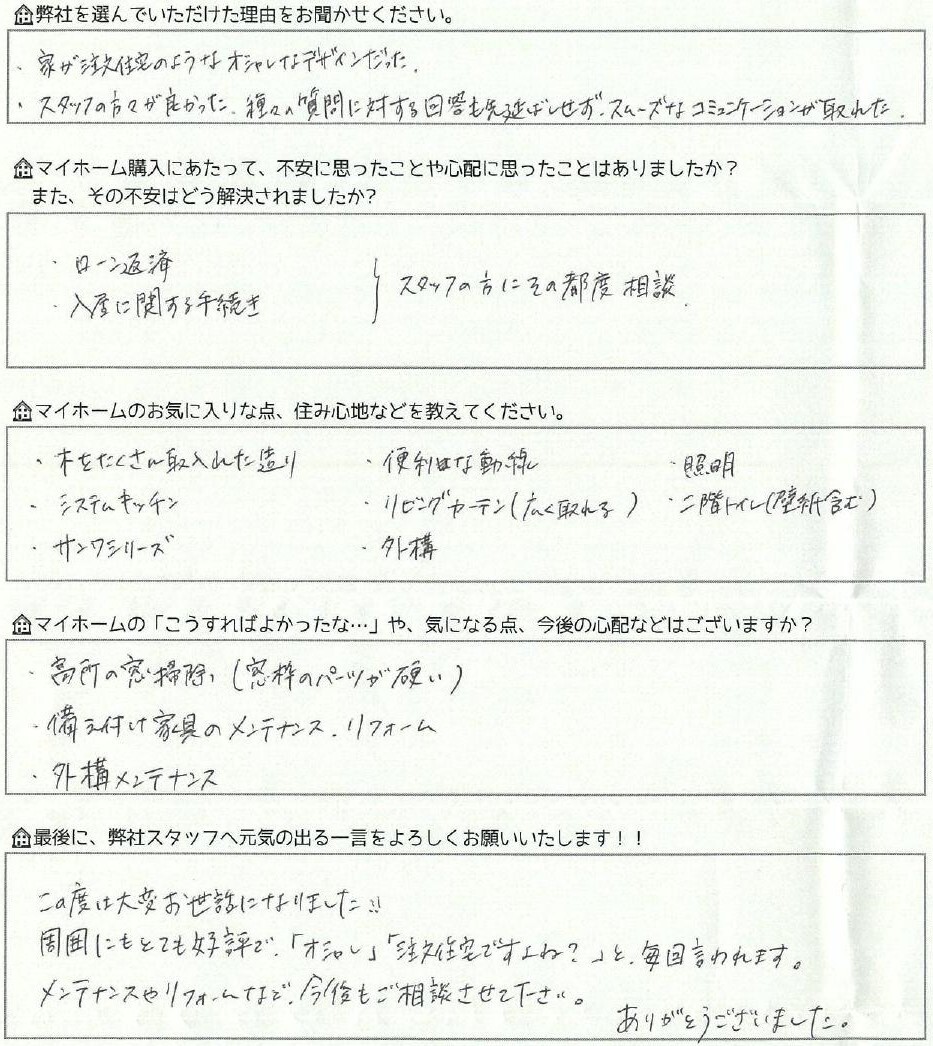 弊社を選んでいただけた理由をお聞かせください。
・家が注文住宅のようなオシャレなデザインだった。
・スタッフの方々が良かった。種々の質問に対する回答も先延ばしせず、スムーズなコミュニケーションが取れた。
マイホーム購入にあたって、不安に思ったことや心配に思ったことはありましたか？
また、その不安はどう解決されましたか?
・ローン返済
・入居に関する手続き
スタッフの方にその都度相談。
マイホームのお気に入りな点、住み心地などを教えてください。
・木をたくさん取入れた造り ・便利な動線 ・照明
・システムキッチン ・リビングカーテン(広く取れる) ・二階トイレ(壁紙含む)
・サンワシリーズ ・外構
マイホームの「こうすればよかったな…」や、気になる点、今後の心配などはございますか？
・高所の窓掃除、(窓枠のパーツが硬い)
・備え付け家具のメンテナンス、リフォーム
・外構メンテナンス
最後に、弊社スタッフへ元気の出る一言をよろしくお願いいたします！！
この度は大変お世話になりました!!
周囲にもとても好評で、「オシャレ」「注文住宅ですよね？」と、毎回言われます。
メンテナンスやリフォームなど、今後もご相談させて下さい。
ありがとうございました。